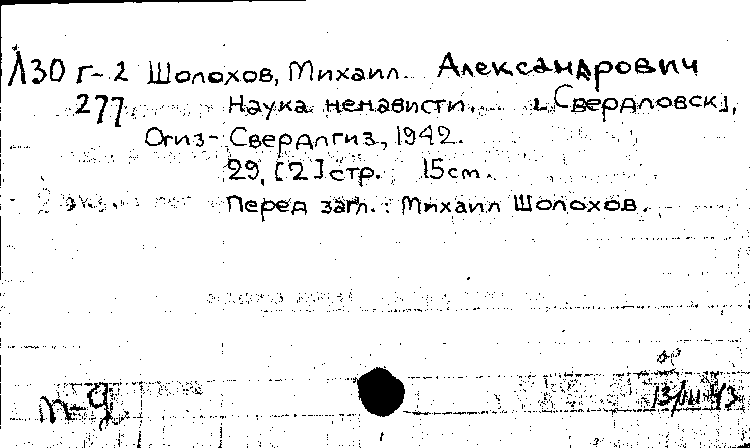 Л30 Г-2 Шолохов, Михаил. Александрович
277 Наука ненависти. [Свердловск],
Огиз-Свердлгиз, 1942.
29, [2] стр. 15 cm.
2 экз.
Перед загл.: Михаил Шолохов.
п-9
13/III 43